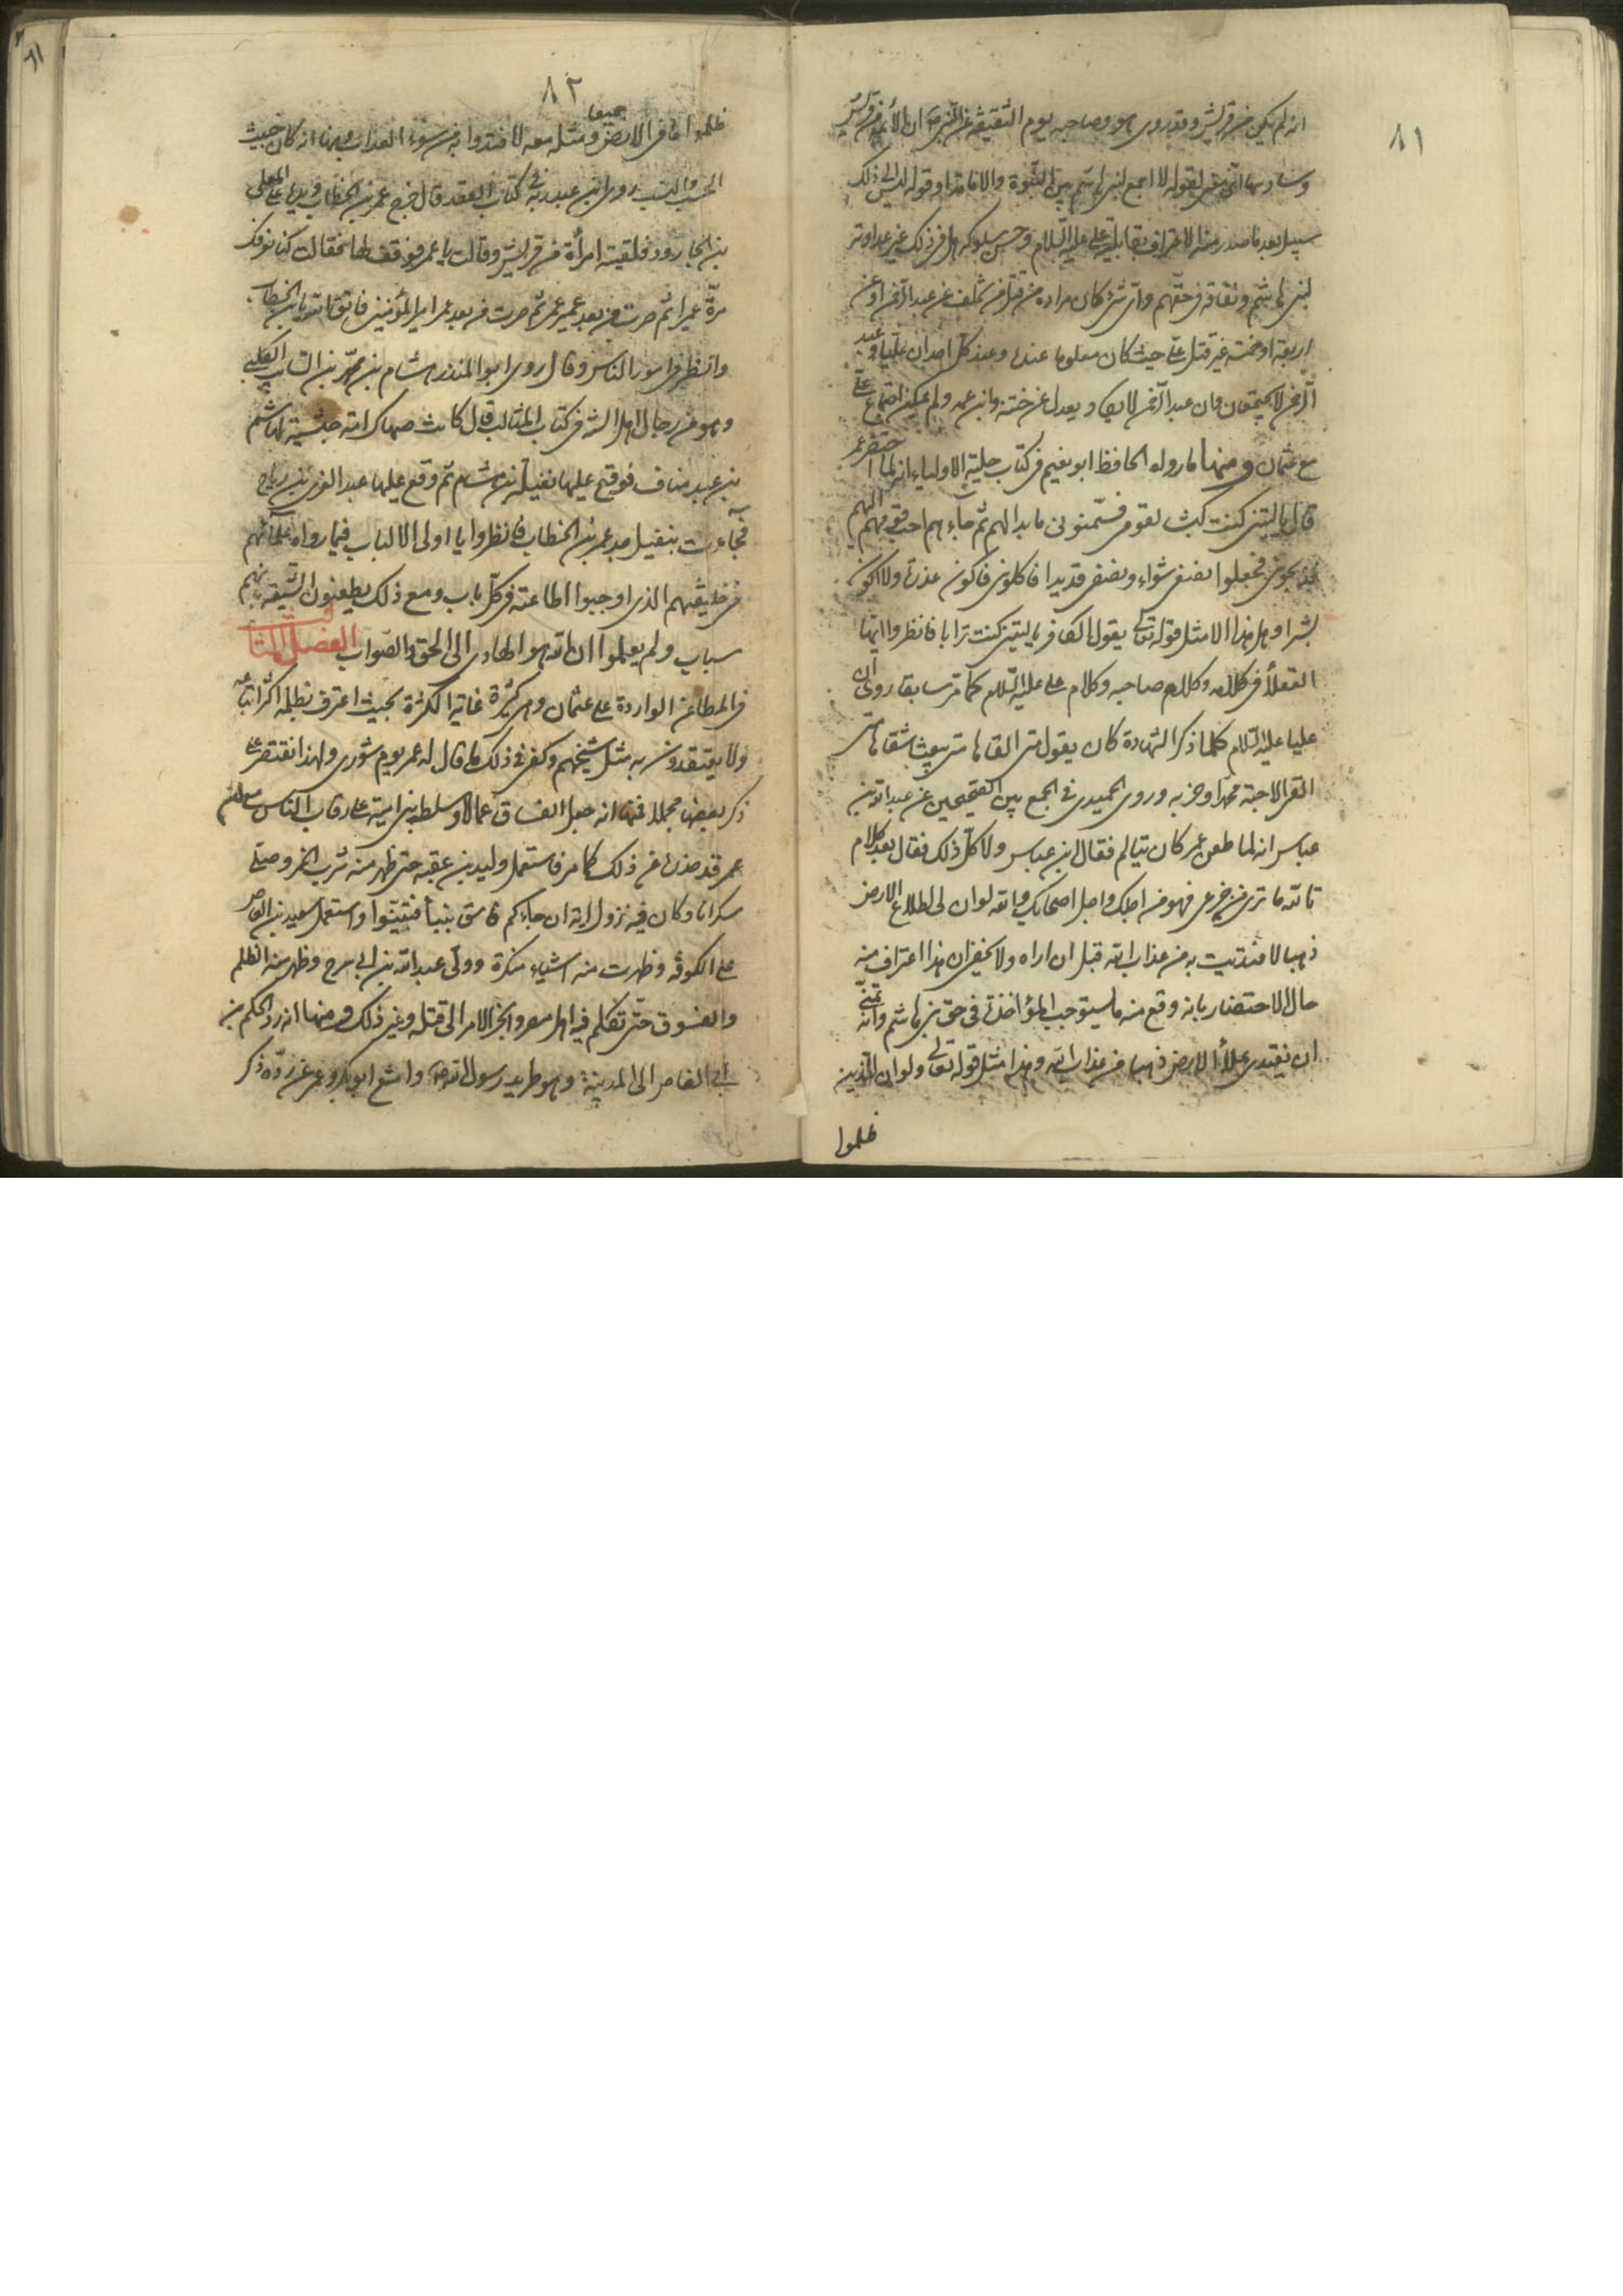 ٨١
انه لم يكن من قريش وقد روى هو وصاحبه يوم الثقيفة عن النبي ص ان الأئمة من قريش
وسادسها انى متى لقوله لا اجمع لبنى هاشم بين النبوة والامامة او قوله ليس الى ذلك
سبيل بعد ما صدر منه الاعتراف بقابلية على عليه السلام وحسن سلوكه هل فى ذلك غير عداوته
لبنى هاشم ونفاقه فى حقهم واى شئ كان مراده من قتل من تخلف عن عبد الرحمن او عن
اربعة او خمسة غير قتل على حيث كان معلوما عنده وعند كل احد ان عليا وعبد
الرحمن لا يجتمعان وان عبد الرحمن لا يعدل عن ختنه وابن عمه ولم يمكن اجتماع على
مع عثمان ومنها ما رواه الحافظ ابو نعيم فى كتاب حلية الاولياء انه لما احتضر عمر
قال يا ليتنى كنت كبشا لقومى فسمنونى ما بدا لهم ثم جاءهم احب قومهم اليهم
فذبحونى فجعلوا نصفى شواء ونصفى قديدا فاكلونى فاكون عذرة ولا اكون
بشرا وهل هذا الا مثل قوله تعالى يقول الكافر يا ليتنى كنت ترابا فانظروا ايها
العقلاء فى كلامه وكلام صاحبه وكلام على عليه السلام كما مر سابقا روى ان
عليا عليه السلام كلما ذكر الشهادة كان يقول متى القاها متى يبعث اشقاها متى
القى الاحبة محمدا وحزبه وروى الحميدى فى الجمع بين الصحيحين عن عبد الله بن
عباس انه لما طعن عمر كان يتالم فقال ابن عباس ولا كل ذلك فقال بعد كلام
تالله ما ترى من جزعى فهو من اجلك واجل اصحابك والله لوان لى طلاع الارض
ذهبا لافتديت به من عذاب الله قبل ان اراه ولا يخفى ان هذا اعتراف منه
حال الاحتضار بانه وقع منه ما يستوجب المؤاخذة فى حق بنى هاشم وانه تمنى
ان يفتدى بملأ الارض ذهبا من عذاب الله وهذا مثل قوله تعالى ولو ان للذين
ظلموا
٨٢
ظلموا ما فى الارض جميعا ومثله معه لافتدوا به من سوء العذاب ومنها انه كان خبيث
الحسب والنسب روى ابن عبد ربه فى كتاب العقد قال خرج عمر بن الخطاب ويده على المعلى
بن الجارود فلقيته امرأة من قريش وقالت يا عمر فوقف لها فقالت كنا نعرفك
مرة عميرا ثم صرت من بعد عمير عمر ثم صرت من بعد عمر امير المؤمنين فاتق الله يا بن الخطاب
وانظر فى امور الناس وقال روى ابو المنذر هشام بن محمد بن السائب الكلبى
وهو من رجال اهل السنة فى كتاب المثالب قال كانت صهاك امة حبشية لهاشم
بن عبد مناف فوقع عليها نفيل بن هشام ثم وقع عليها عبد العزى بن رباح
فجاءت بنفيل جد عمر بن الخطاب فانظروا يا اولى الالباب فيما رواه علمائهم
فى خليفتهم الذى اوجبوا اطاعته فى كل باب ومع ذلك يطعنون الشيعة بانهم
سباب ولم يعلموا ان الله هو الهادى الى الحق والصواب الفصل الثالث
فى المطاعن الواردة على عثمان وهى كثيرة غاية الكثرة بحيث اعترف بظلمه اكثر اتباعه
ولا يعتقدون به مثل شيخهم وكفى فى ذلك ما قال له عمر يوم شورى ولهذا نقتصر على
ذكر بعضها مجملا فمنها انه جعل الفساق عمالا وسلط بنى امية على رقاب الناس مع ان
عمر قد حذره عن ذلك كما مر فاستعمل وليد بن عقبة حتى ظهر منه شرب الخمر وصلى
سكرانا وكان فيه نزول اية ان جاءكم فاسق بنبأ فتبينوا واستعمل سعيد بن العاص
على الكوفة وظهرت منه اشياء منكرة وولى عبد الله بن ابى سرح وظهر منه الظلم
والفسوق حتى تظلم فيه اهل مصر وانجر الامر الى قتله وغير ذلك ومنها انه رد الحكم بن
ابى العاص الى المدينة وهو طريد رسول الله ص وامتنع ابو بكر وعمر عن رده ذكر